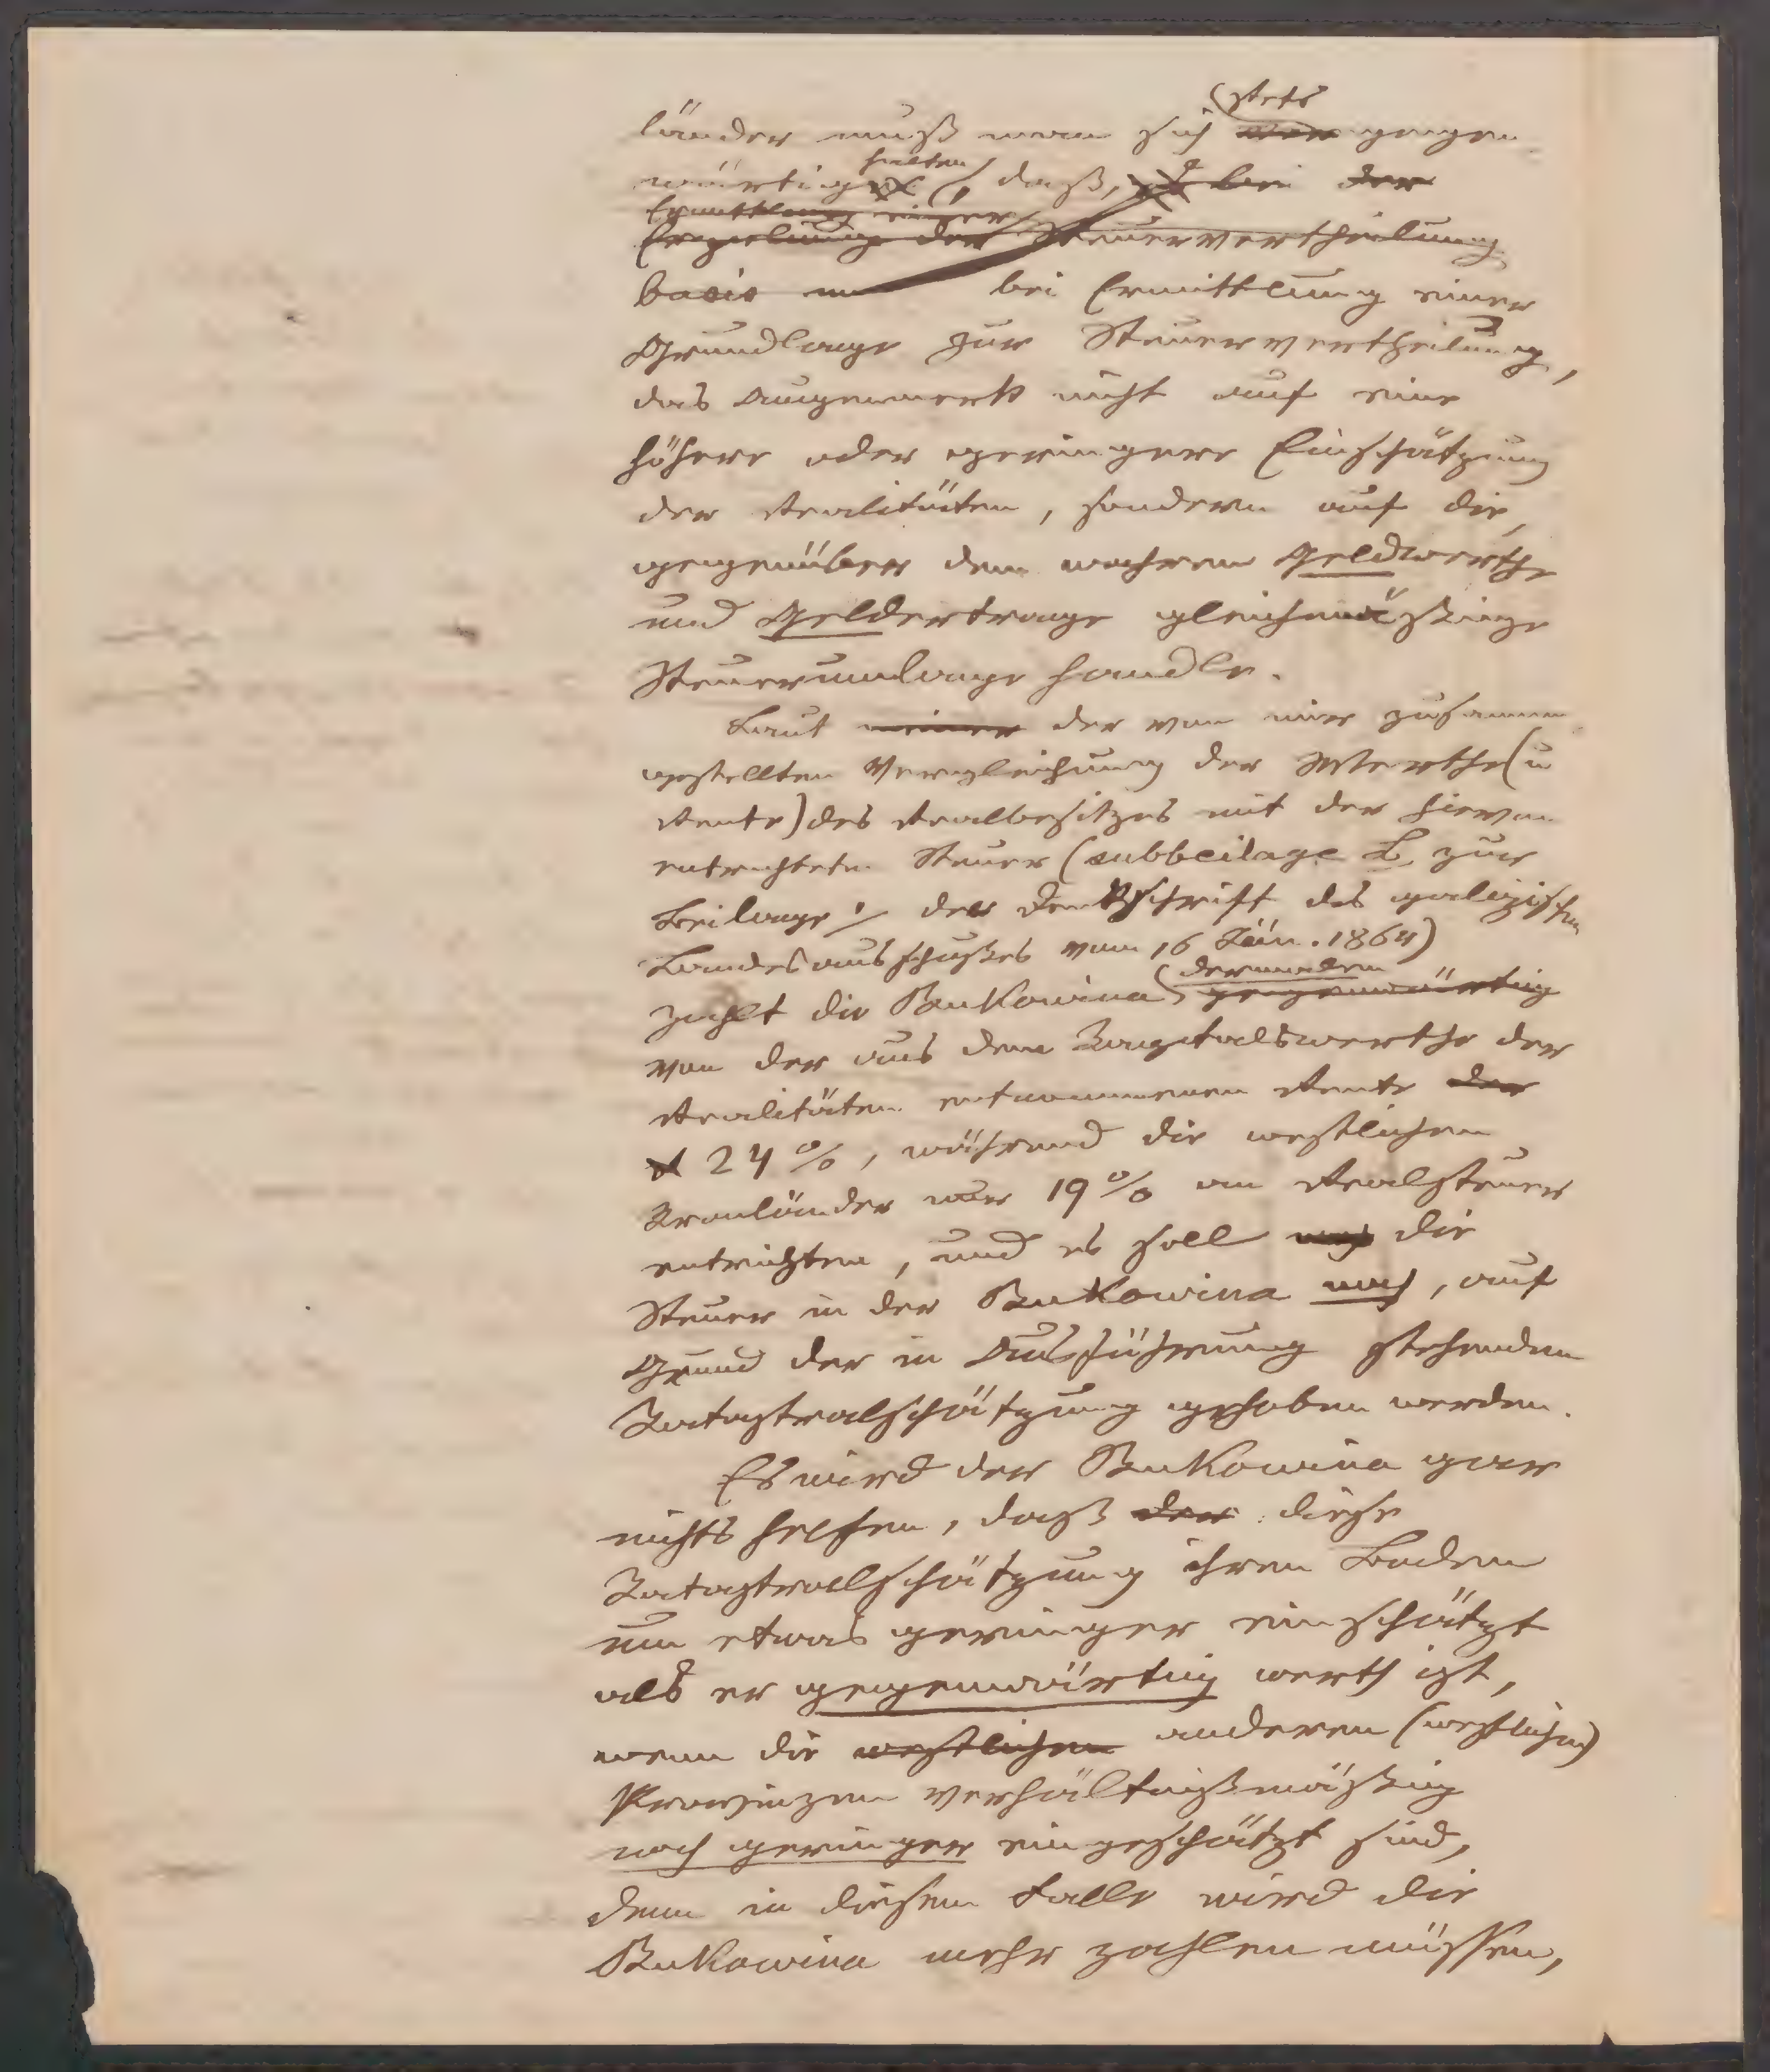 stets
länder muß man sich gegen-
halten
wärtig, daß, bei der
Ermittlung einer
Erzielung der Steuervertheilung
basis bei Ermittlung einer
Grundlage zur Steuervertheilung,
das Augenmerk nicht auf eine
höhere oder geringere Einschätzung
der Realitäten, sondern auf die,
gegenüber dem wahren Geldwerthe
und Geldertrage gleichmäßige
Steuerumlage handle.
Laut meiner der von mir zusammen-
gestellten Vergleichung der Werthe (u
Rente) des Realbesitzes mit der hievon
entrichteten Steuer (subbeilage L zur
Beilage ·/. der Denkschrift des galizischen
Landesausschußes vom 16 Jän. 1864)
dermalen
zahlt die Bukowina gegenwärtig
von der aus dem Kapitalswerthe der
Realitäten entnommenen Rente der
24%, während die westlichen
Kronländer nur 19% an Realsteuer
entrichten, und es soll noch die
Steuer in der Bukowina noch, auf
Grund der in Ausführung stehenden
Katastralschätzung gehoben werden.
Es wird der Bukowina gar
nichts helfen, daß der diese
Katastralschätzung ihren Boden
um etwas geringer einschätzt
als er gegenwärtig werth ist,
wenn die westlichen anderen (westlichen)
Provinzen verhältnißmäßig
noch geringer eingeschätzt sind,
denn in diesem Falle wird die
Bukowina mehr zahlen müssen,